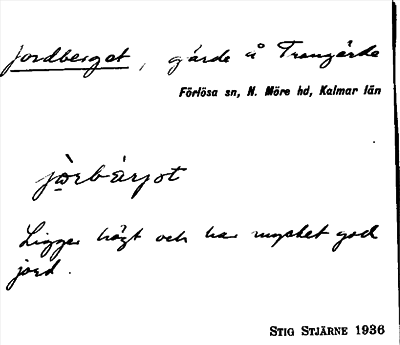 Jordberget, gärde å Tromgärde
Förlösa sn, N. Möre hd, Kalmar län
jòrbärjot
Ligger högt och har mycket god
jord.
STIG STJÄRNE 1936